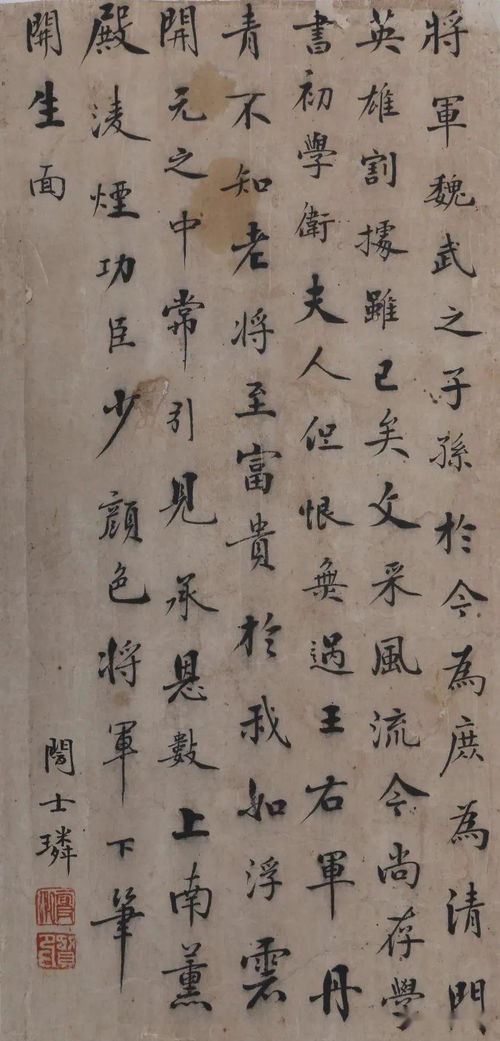 將軍魏武之子孫於今為庶為清門
英雄割據雖已矣文采風流今尚存學
書初學衛夫人但恨無過王右軍丹
青不知老將至富貴於我如浮雲
開元之中常引見承恩數上南薰
殿淩煙功臣少顏色將軍下筆
開生面
閻士璘